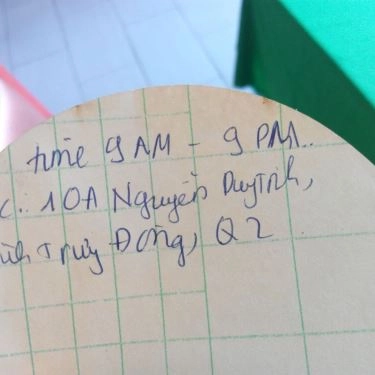 time 9 AM - 9 PM..
C.. 10A Nguyễn Duy Trinh,
Bình Trưng Đông, Q2